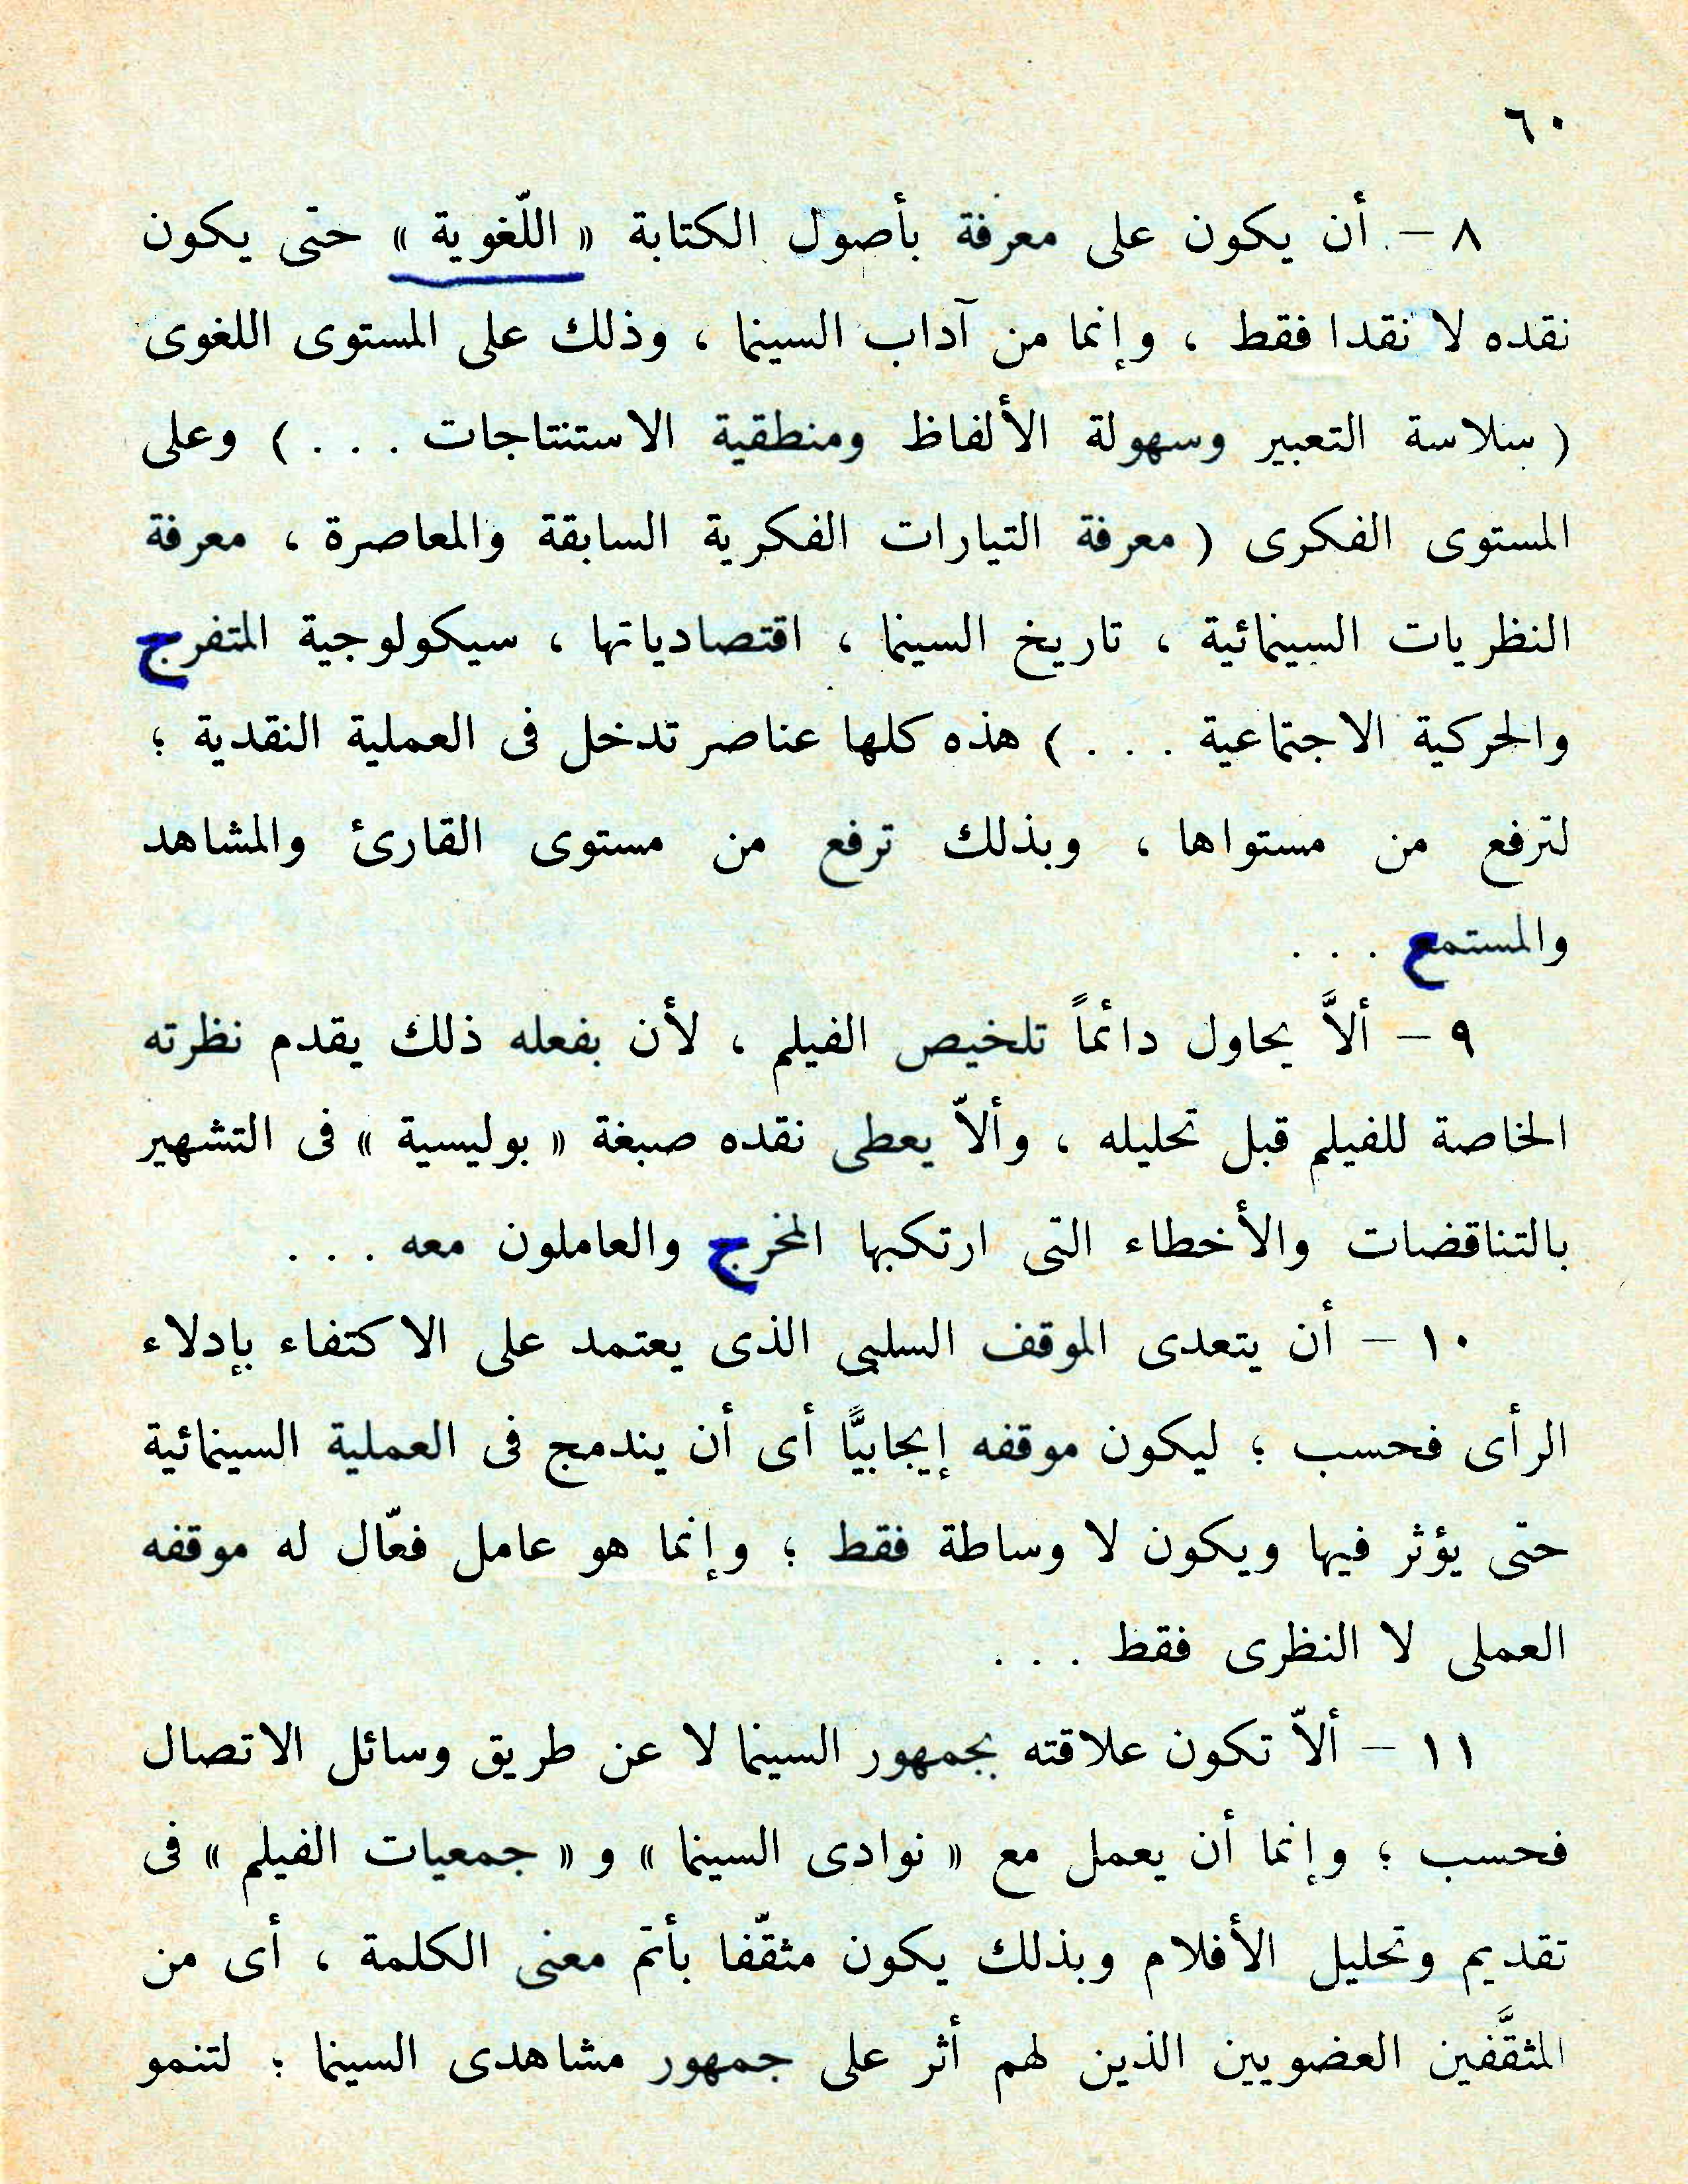 ٦٠
٨ – أن يكون على معرفة بأصول الكتابة « اللّغوية » حتى يكون
نقده لا نقدا فقط ، وإنما من آداب السينما ، وذلك على المستوى اللغوى
( سلاسة التعبير وسهولة الألفاظ ومنطقية الاستنتاجات . . . ) وعلى
المستوى الفكرى ( معرفة التيارات الفكرية السابقة والمعاصرة ، معرفة
النظريات السينمائية ، تاريخ السينما ، اقتصادياتها ، سيكولوجية المتفرج
والحركية الاجتماعية . . . ) هذه كلها عناصر تدخل فى العملية النقدية ؛
لترفع من مستواها ، وبذلك ترفع من مستوى القارئ والمشاهد
والمستمع . . .
٩ – ألاَّ يحاول دائماً تلخيص الفيلم ، لأن بفعله ذلك يقدم نظرته
الخاصة للفيلم قبل تحليله ، وألاّ يعطى نقده صبغة « بوليسية » فى التشهير
بالتناقضات والأخطاء التى ارتكبها المخرج والعاملون معه . . .
١٠ – أن يتعدى الموقف السلبى الذى يعتمد على الاكتفاء بإدلاء
الرأى فحسب ؛ ليكون موقفه إيجابيًّا أى أن يندمج فى العملية السينمائية
حتى يؤثر فيها ويكون لا وساطة فقط ؛ وإنما هو عامل فعّال له موقفه
العملى لا النظرى فقط . . .
١١ – ألاّ تكون علاقته بجمهور السينما لا عن طريق وسائل الاتصال
فحسب ؛ وإنما أن يعمل مع « نوادى السينما » و « جمعيات الفيلم » فى
تقديم وتحليل الأفلام وبذلك يكون مثقّفا بأتمّ معنى الكلمة ، أى من
المثقَّفين العضويين الذين لهم أثر على جمهور مشاهدى السينما ؛ لتنمو